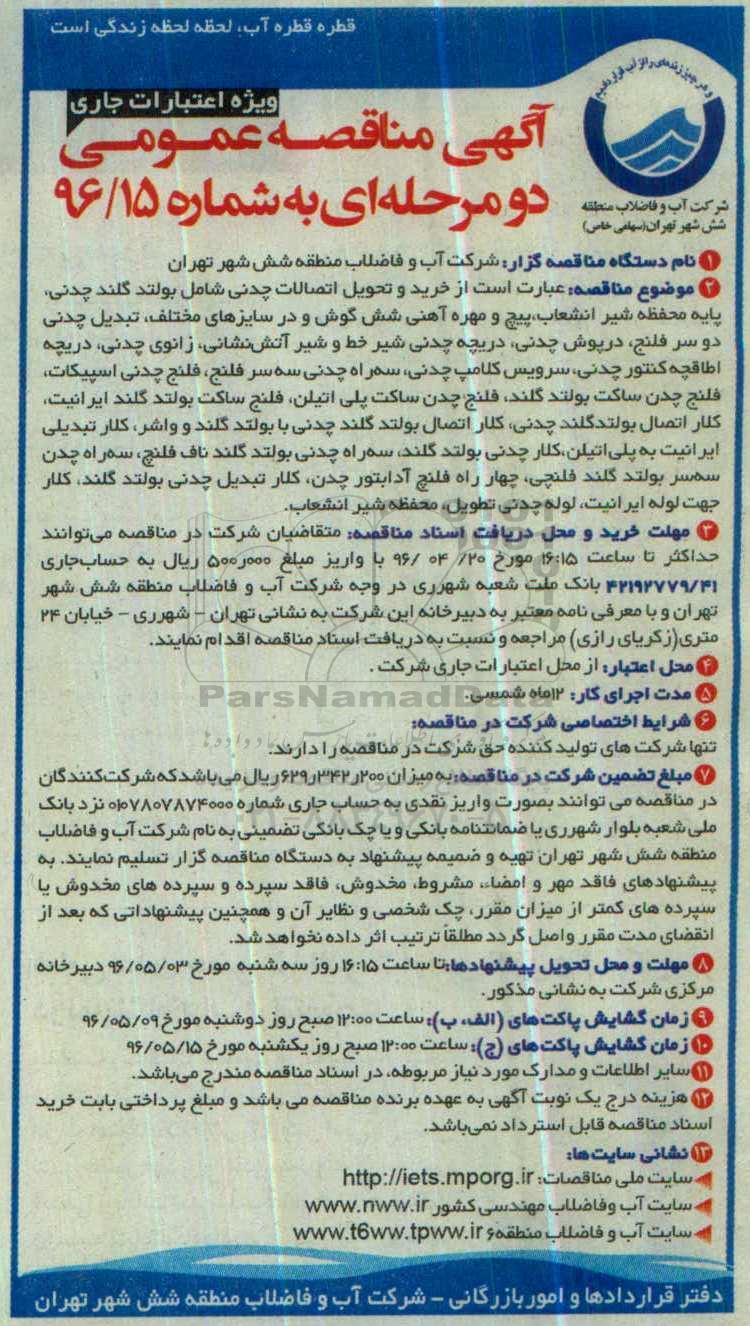 قطره قطره آب، لحظه لحظه زندگی است
و هر چیز زنده‌ای را از آب قرار دادیم
شرکت آب و فاضلاب منطقه
شش شهر تهران(سهامی خاص)
ویژه اعتبارات جاری
آگهی مناقصه عمومی
دو مرحله‌ای به شماره ۹۶/۱۵
۱ نام دستگاه مناقصه گزار: شرکت آب و فاضلاب منطقه شش شهر تهران
۲ موضوع مناقصه: عبارت است از خرید و تحویل اتصالات چدنی شامل بولتد گلند چدنی،
پایه محفظه شیر انشعاب،پیچ و مهره آهنی شش گوش و در سایزهای مختلف، تبدیل چدنی
دو سر فلنج، درپوش چدنی، دریچه چدنی شیر خط و شیر آتش‌نشانی، زانوی چدنی، دریچه
اطاقچه کنتور چدنی، سرویس کلامپ چدنی، سه‌راه چدنی سه سر فلنج، فلنج چدنی اسپیکات،
فلنج چدن ساکت بولتد گلند، فلنج چدن ساکت پلی اتیلن، فلنج ساکت بولتد گلند ایرانیت،
کلار اتصال بولتدگلند چدنی، کلار اتصال بولتد گلند چدنی با بولتد گلند و واشر، کلار تبدیلی
ایرانیت به پلی‌اتیلن،کلار چدنی بولتد گلند، سه‌راه چدنی بولتد گلند ناف فلنچ، سه‌راه چدن
سه‌سر بولتد گلند فلنچی، چهار راه فلنچ آدابتور چدن، کلار تبدیل چدنی بولتد گلند، کلار
جهت لوله ایرانیت، لوله چدنی تطویل، محفظه شیر انشعاب.
۳ مهلت خرید و محل دریافت اسناد مناقصه: متقاضیان شرکت در مناقصه می‌توانند
حداکثر تا ساعت ۱۶:۱۵ مورخ ۲۰/ ۰۴ /۹۶ با واریز مبلغ ۵۰۰٫۰۰۰ ریال به حساب‌جاری
۴۲۱۹۲۷۷۹/۴۱ بانک ملت شعبه شهرری در وجه شرکت آب و فاضلاب منطقه شش شهر
تهران و با معرفی نامه معتبر به دبیرخانه این شرکت به نشانی تهران - شهرری - خیابان ۲۴
متری(زکریای رازی) مراجعه و نسبت به دریافت اسناد مناقصه اقدام نمایند.
۴ محل اعتبار: از محل اعتبارات جاری شرکت .
۵ مدت اجرای کار: ۱۲ماه شمسی.
ParsNamadData
۶ شرایط اختصاصی شرکت در مناقصه:
تنها شرکت های تولید کننده حق شرکت در مناقصه را دارند.
۷ مبلغ تضمین شرکت در مناقصه: به میزان ۶۲۹٫۳۴۲٫۲۰۰ ریال می باشد که شرکت‌کنندگان
در مناقصه می توانند بصورت واریز نقدی به حساب جاری شماره ۰۱۰۷۸۰۷۸۷۴۰۰۰ نزد بانک
ملی شعبه بلوار شهرری یا ضمانتنامه بانکی و یا چک بانکی تضمینی به نام شرکت آب و فاضلاب
منطقه شش شهر تهران تهیه و ضمیمه پیشنهاد به دستگاه مناقصه گزار تسلیم نمایند. به
پیشنهادهای فاقد مهر و امضاء، مشروط، مخدوش، فاقد سپرده و سپرده های مخدوش یا
سپرده های کمتر از میزان مقرر، چک شخصی و نظایر آن و همچنین پیشنهاداتی که بعد از
انقضای مدت مقرر واصل گردد مطلقاً ترتیب اثر داده نخواهد شد.
۸ مهلت و محل تحویل پیشنهادها:تا ساعت ۱۶:۱۵ روز سه شنبه مورخ ۹۶/۰۵/۰۳ دبیرخانه
مرکزی شرکت به نشانی مذکور.
۹ زمان گشایش پاکت‌های (الف، ب): ساعت ۱۲:۰۰ صبح روز دوشنبه مورخ ۹۶/۰۵/۰۹
۱۰ زمان گشایش پاکت‌های (ج): ساعت ۱۲:۰۰ صبح روز یکشنبه مورخ ۹۶/۰۵/۱۵
۱۱ سایر اطلاعات و مدارک مورد نیاز مربوطه، در اسناد مناقصه مندرج می‌باشد.
۱۲ هزینه درج یک نوبت آگهی به عهده برنده مناقصه می باشد و مبلغ پرداختی بابت خرید
اسناد مناقصه قابل استرداد نمی‌باشد.
۱۳ نشانی سایت‌ها:
سایت ملی مناقصات: http://iets.mporg.ir
سایت آب وفاضلاب مهندسی کشور www.nww.ir
سایت آب و فاضلاب منطقه۶ www.t6ww.tpww.ir
دفتر قراردادها و امور بازرگانی - شرکت آب و فاضلاب منطقه شش شهر تهران